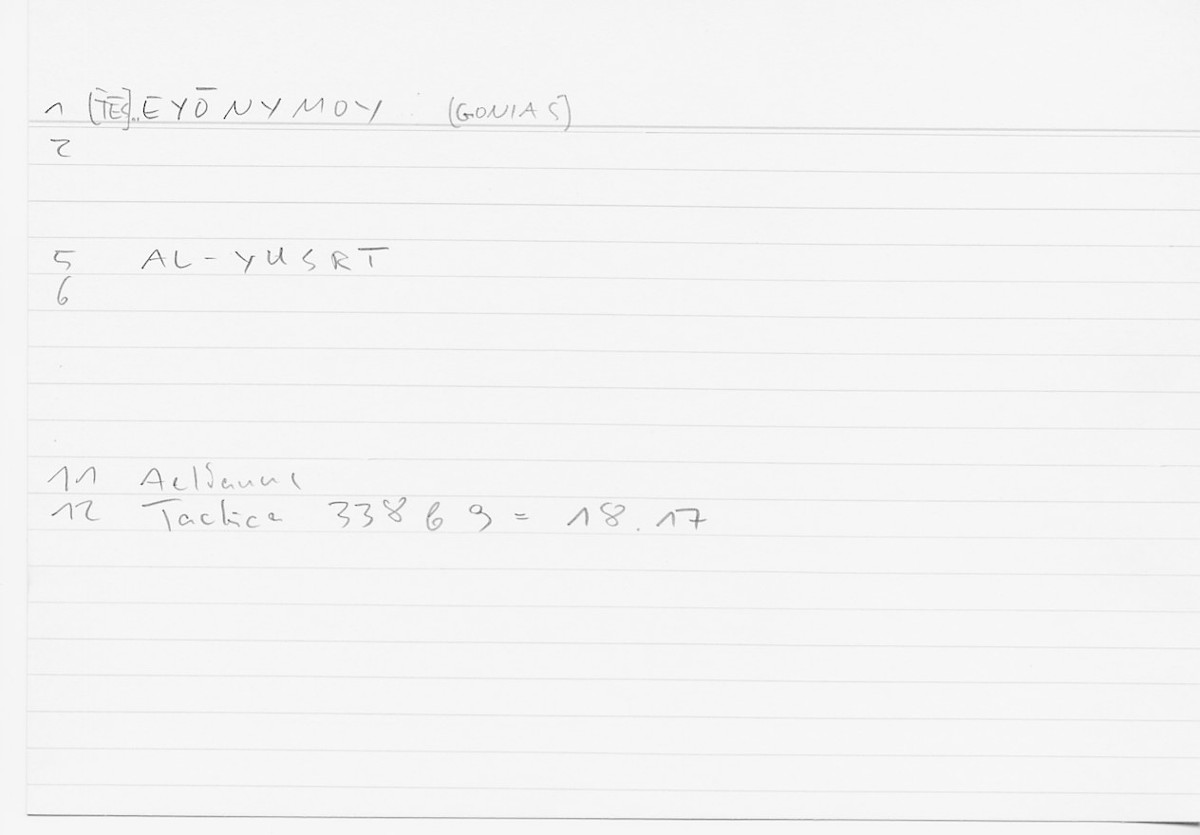 1 [TĒS].. EYŌNYMOY (GONIAS]
2
5 AL-YUSRT
6
11 Aelianus
12 Tactica 338 6 9 = 18.17